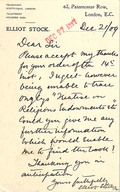 62, Paternoster Row,
London, E.C.
ELLIOT STOCK.
Dec. 21/09
Dear Sir
Please accept my thanks
for your order of the 14th
inst, I regret however
being unable to trace
any Treatise on
Religious Endowments
Could you give me any
further information
which would enable
me to find the book?
Thanking you in
anticipation
Yours faithfully
Elliot Stock